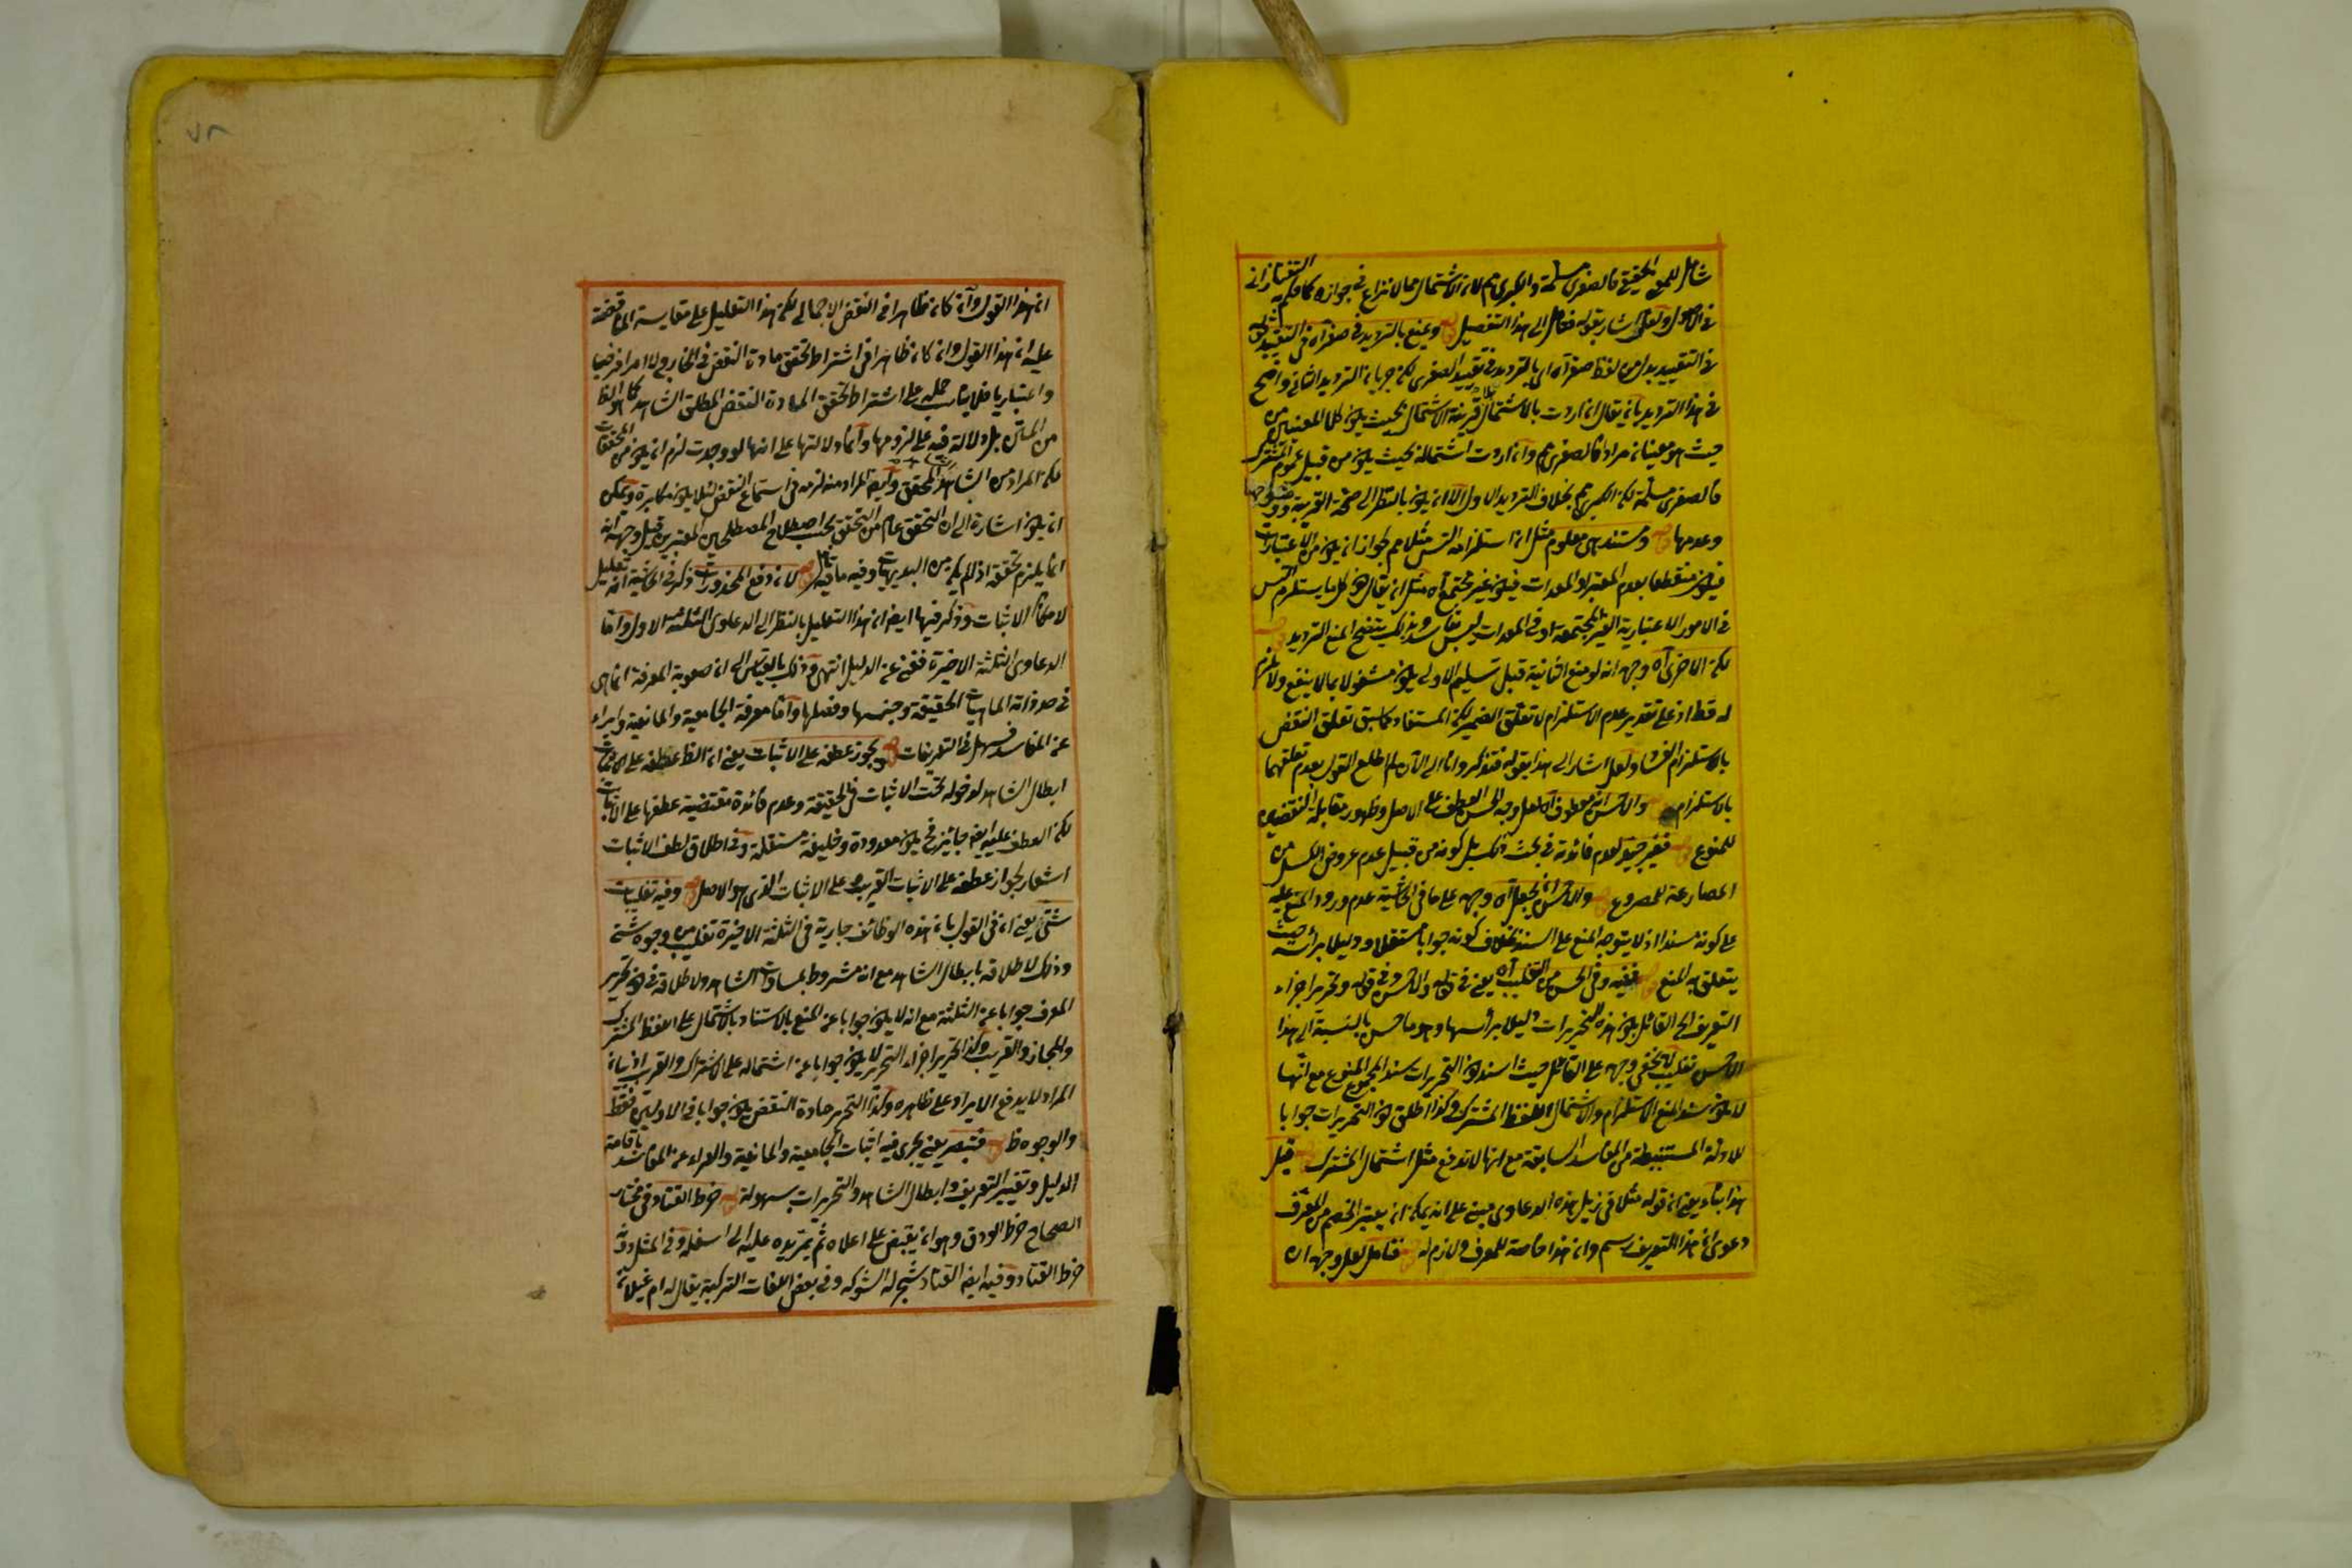 شامل للمعنى الحقيقي فالصغرى مسلمة والكبرى مم لان الاشتمال مما لا نزاع في جوازه كما حكم به التفتازاني
في الاصول ولعله اشار بقوله فتأمل الى هذا التفصيل قوله ويمنع بالترديد في صغراه في التقييد
في التقييد بدل من لفظ صغراه اى بالترديد في تقييد الصغرى لكن جريان الترديد الثاني واضح
في هذا الترديد بان يقال ان اردت بالاشتمال بلا قرينة الاشتمال بحيث يكون كلا المعنيين من
حيث هو معنيان مرادا فالصغرى مم وان اردت اشتماله بحيث يكون من قبيل عموم المشترك
فالصغرى مسلمة لكن الكبرى مم بخلاف الترديد الاول الا ان يكون بالنظر الى صحة القرينة ووضوحها
وعدمها قوله ومستند هى معلوم مثل ان استلزامه التس مثلا مم لجواز ان يكون من الاعتبارات
فيكون منقطعا بعدم المعتبر او المعدات فيكون غير مجتمع اه مثل ان يقال هذا كل ما يستلزم التس
في الامور الاعتبارية الغير المجتمعة او في المعدات ليس بفاسد وبذلك يتضح المنع الترديد قوله
لكن الاخرى اه وجهه انه لو منع الثانية قبل تسليم الاولى يكون مشغولا بما لا ينفع ولا يلزم
له قط اذ على تقدير عدم الاستلزام لا تعلق الضمير لكن المستفاد مما سبق تعلق النقض
بالاستلزام الفساد ولعل اشار الى هذا بقوله فتذكر وانا الى الآن لم اطلع القول بعدم تعلقهما
بالاستلزام قوله والاحسن انه معطوف اه لعل وجه الحسن العطف على الاصل وظهور مقابلة النقضين
للمنوع قوله فغير جيد لعدم فائدته في بحث ذلك بل كونه من قبيل عدم عروض الكسل من
المصارعة للمصروع قوله والاحسن ان يجعل اه وجهه على ما في الحاشية عدم ورود المنع عليه
على كونه مسندا اذ لا يتوجه المنع على السند بخلاف كونه جوابا مستقلا ودليلا برأسه حيث
يتعلق به المنع قوله ففيه وفي الحسن من التغليب اه يعنى في قوله والاحسن وفي قوله وتحرير اجزاء
التعريف الخ القائل بكون هذه التحريرات دليلا برأسها وهو ما حسن بالنسبة الى هذا
الاحسن تغليب لا يخفى وجهه على القائل حيث اسند هذه التحريرات سند المجموع المنوع مع انها
لا يكون سند المنع الاستلزام والاشتمال اللفظ المشترك وكذا اطلق هذه التحريرات جوابا
لادلة المستنبطة من المفاسد السابقة مع انها لا تدفع مثل اشتمال المشترك قوله قيل
هذا بناء يعنى ان قوله مثلا في ذيل هذه الدعاوى مبنى على انه يمكن ان يعتبر الخصم من المعرف
دعوى ان هذا التعريف رسم وان هذا خاصة للمعرف ولازم له قوله فتأمل لعل وجهه ان
٧٨
ان هذا القول وان كان ظاهرا في النقض الاجمالى لكن هذا التعليل على مقايسة المناقضة
عليه ان هذا القول وان كان ظاهرا في اشتراط تحقق مادة النقض في الخارج ولا امرا فرضيا
واعتباريا فلا يناسب حمله على اشتراط تحقق المادة النقض المطلق الشاهد كما هو الظ
من المتن بل دلالة فيه على لزومها وانما دلالتها على انها لو وجدت لزم ان يكون من المحققات
لكن المراد من الشاهد المحقق وايضا المراد منه لزمه في استماع النقض لئلا يكون مكابرة ويمكن
ان يكون اشارة الى ان التحقق عام من التحقق بحسب اصطلاح المصطلحين المعتبرين قيل وجهه انه
انما يلزم تحققه اذ لم يكن من البديهيات وفيه ما فيه تأمل قوله لان دفع المحذورات ذكر في الحاشية انه تعليل
لامكان الاثبات وذكر فيها ايضا ان هذا التعليل بالنظر الى الدعاوى الثلثة الاول واما
الدعاوى الثلثة الاخيرة فغنى عن الدليل انتهى وذلك بالقياس الى ان صعوبة المعرفة انما هى
في صدق الماهيات الحقيقة وجنسها وفصلها واما معرفة الجامعية والمانعية وابراء
عن المفاسد فسهل في التعريفات قوله يجوز عطفه على الاثبات يعنى ان الظ عطفه على الاثبات
ابطال الشاهد لدخوله تحت الاثبات في الحقيقة وعدم فائدة مقتضية عطفها على الاثبات
لكن العطف عليه ايضا جائز فح يكون معدودة وظيفة مستقلة وفي اطلاق لفظ الاثبات
اشعار لجواز عطفه على الاثبات القريب على الاثبات الذى هو الاصل قوله وفيه تغليبات
شتى يعنى ان في القول بان هذه الوظائف جارية في الثلثة الاخيرة تغليب من وجوه شتى
وذلك لاطلاقه بابطال الشاهد مع انه مشروط بمساوات الشاهد ولاطلاقه في كون تحرير
المعرف جوابا عن الثلثة مع انه لا يكون جوابا عن المنع بالاستناد بالاشتمال على اللفظ المشترك
والمجاز والغريب وكذا تحرير اجزاء التحرير لا يكون جوابا عن اشتماله على الاشتراك والغريب اذ بيان
المراد لا يدفع الايراد على ظاهره وكذا التحرير مادة النقض يكون جوابا في الاوليين فقط
والوجوه ظ قوله فتبصر يعنى يجرى فيه اثبات الجامعية والمانعية والعراء عن المفاسد باقامة
الدليل وتغيير التعريف وابطال الشاهد والتحريرات بسهولة قوله خرط القتاد وفي مختار
الصحاح خرط الورق وهو ان يقبض على اعلاه ثم يمر يده عليه الى اسفله وفي المثل دونه
خرط القتاد وفيه ايضا القتاد شجر له الشوكه وفي بعض اللغات التركية يقال له ام غيلان